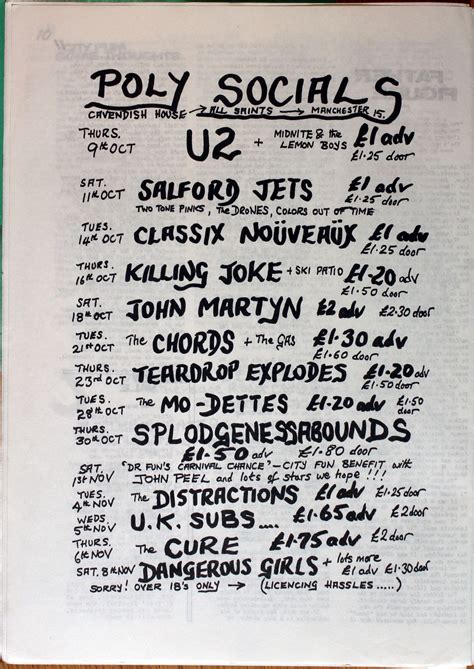 10
POLY SOCIALS
CAVENDISH HOUSE → ALL SAINTS → MANCHESTER 15.
THURS. 9th OCT U2 + MIDNITE & the LEMON BOYS £1 adv £1·25 door
SAT. 11th OCT SALFORD JETS £1 adv £1·25 door
TWO TONE PINKS, THE DRONES, COLORS OUT OF TIME
TUES. 14th OCT CLASSIX NOÜVEAÜX £1 adv £1·25 door
THURS. 16th OCT KILLING JOKE + SKI PATIO £1·20 adv £1·50 door
SAT. 18th OCT JOHN MARTYN £2 adv £2·30 door
TUES. 21st OCT The CHORDS + The GAS £1·30 adv £1·60 door
THURS. 23rd OCT TEARDROP EXPLODES £1·20 adv £1·50 door
TUES. 28th OCT The MO-DETTES £1·20 adv £1·50 door
THURS. 30th OCT SPLODGENESSABOUNDS
£1·50 adv £1·80 door
SAT. 1st NOV 'DR FUN'S CARNIVAL CHANCE' - CITY FUN BENEFIT with
JOHN PEEL and lots of stars we hope !!!
TUES. 4th NOV The DISTRACTIONS £1 adv £1·25 door
WEDS. 5th NOV U.K. SUBS .... £1·65 adv £2 door
THURS. 6th NOV The CURE £1·75 adv £2 door
SAT. 8th NOV DANGEROUS GIRLS + lots more £1 adv £1·30 door
SORRY! OVER 18'S ONLY → (LICENCING HASSLES .....)